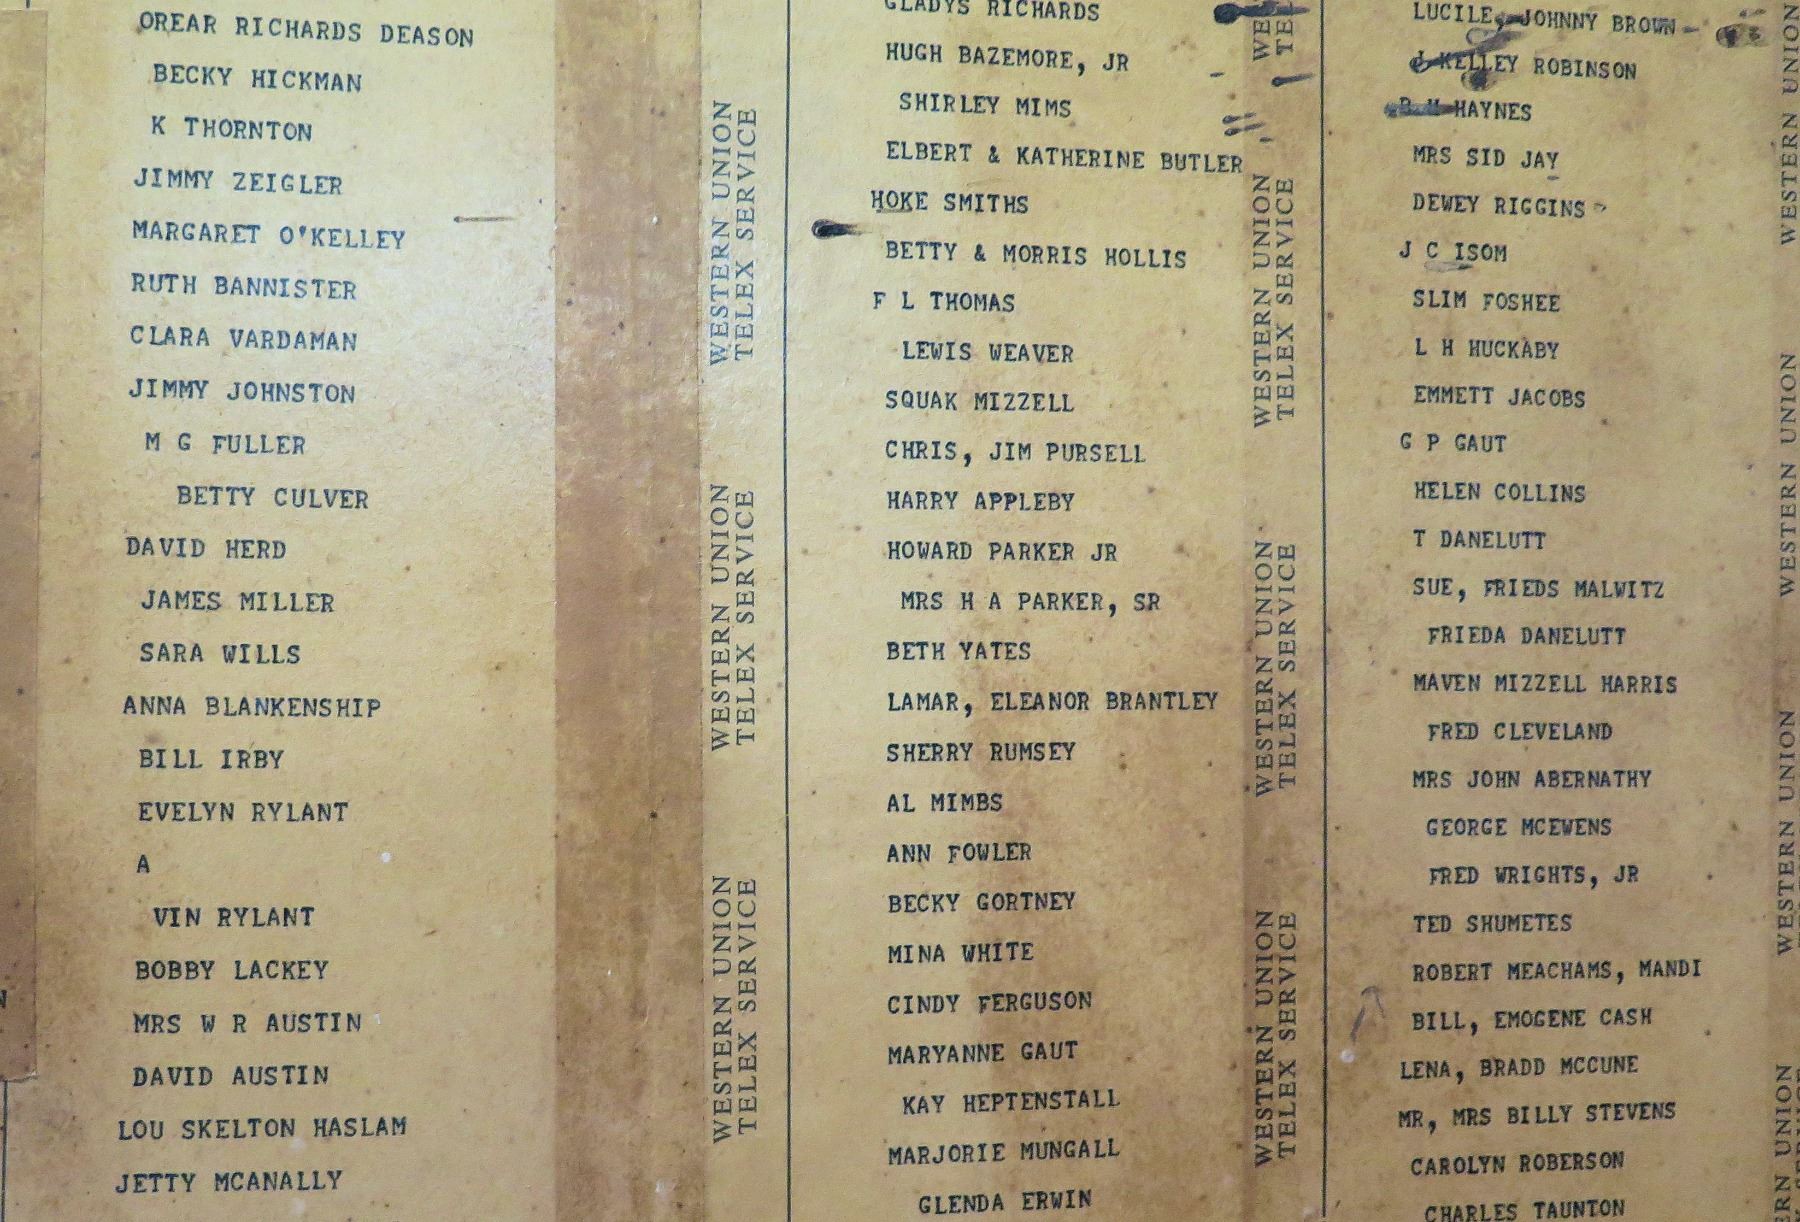 OREAR RICHARDS DEASON
BECKY HICKMAN
K THORNTON
JIMMY ZEIGLER
MARGARET O'KELLEY
RUTH BANNISTER
CLARA VARDAMAN
JIMMY JOHNSTON
M G FULLER
BETTY CULVER
DAVID HERD
JAMES MILLER
SARA WILLS
ANNA BLANKENSHIP
BILL IRBY
EVELYN RYLANT
A
VIN RYLANT
BOBBY LACKEY
MRS W R AUSTIN
DAVID AUSTIN
LOU SKELTON HASLAM
JETTY MCANALLY
WESTERN UNION
TELEX SERVICE
WESTERN UNION
TELEX SERVICE
WESTERN UNION
TELEX SERVICE
GLADYS RICHARDS
HUGH BAZEMORE, JR
SHIRLEY MIMS
ELBERT & KATHERINE BUTLER
HOKE SMITHS
BETTY & MORRIS HOLLIS
F L THOMAS
LEWIS WEAVER
SQUAK MIZZELL
CHRIS, JIM PURSELL
HARRY APPLEBY
HOWARD PARKER JR
MRS H A PARKER, SR
BETH YATES
LAMAR, ELEANOR BRANTLEY
SHERRY RUMSEY
AL MIMBS
ANN FOWLER
BECKY GORTNEY
MINA WHITE
CINDY FERGUSON
MARYANNE GAUT
KAY HEPTENSTALL
MARJORIE MUNGALL
GLENDA ERWIN
WE
TE
WESTERN UNION
TELEX SERVICE
WESTERN UNION
TELEX SERVICE
WESTERN UNION
TELEX SERVICE
LUCILE, JOHNNY BROWN
J KELLEY ROBINSON
HAYNES
MRS SID JAY
DEWEY RIGGINS
J C ISOM
SLIM FOSHEE
L H HUCKABY
EMMETT JACOBS
G P GAUT
HELEN COLLINS
T DANELUTT
SUE, FRIEDS MALWITZ
FRIEDA DANELUTT
MAVEN MIZZELL HARRIS
FRED CLEVELAND
MRS JOHN ABERNATHY
GEORGE MCEWENS
FRED WRIGHTS, JR
TED SHUMETES
ROBERT MEACHAMS, MANDI
BILL, EMOGENE CASH
LENA, BRADD MCCUNE
MR, MRS BILLY STEVENS
CAROLYN ROBERSON
CHARLES TAUNTON
WESTERN UNION
WESTERN UNION
WESTERN UNION
ERN UNION